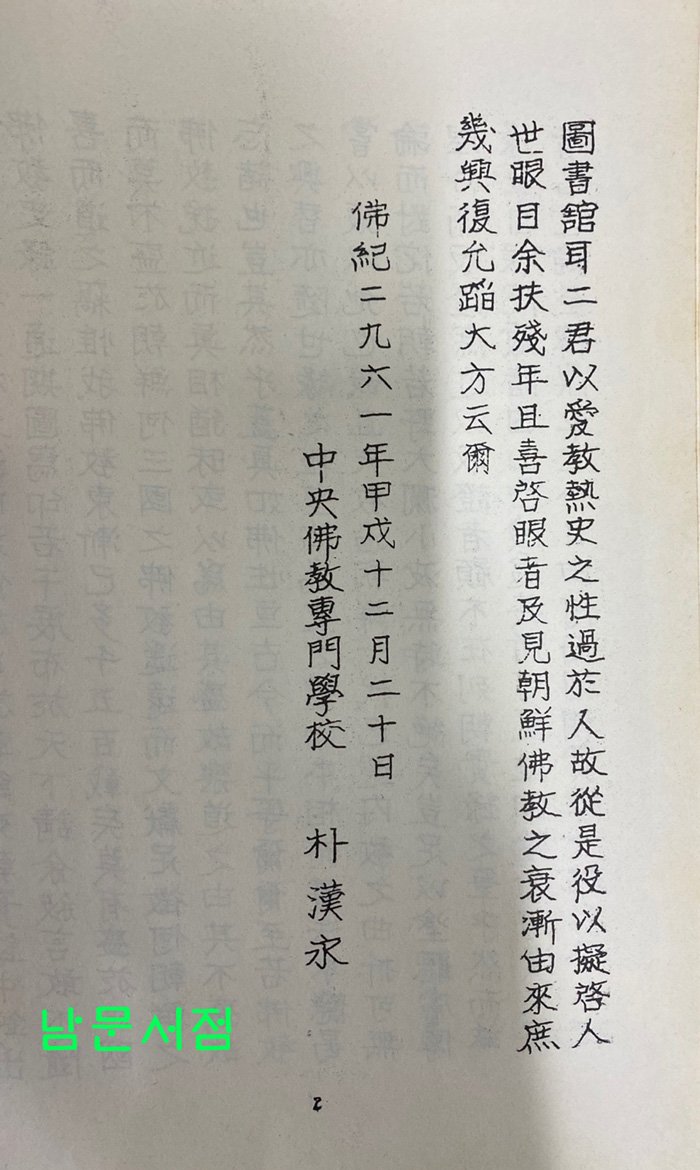 圖書舘耳二君以愛教熱史之性過於人故從是役以擬啓人
世眼目余扶殘年且喜啓眼昔及見朝鮮佛教之衰漸由來庶
幾興復允蹈大方云爾
佛紀二九六一年甲戌十二月二十日
中央佛教專門學校 朴漢永
남문서점
2